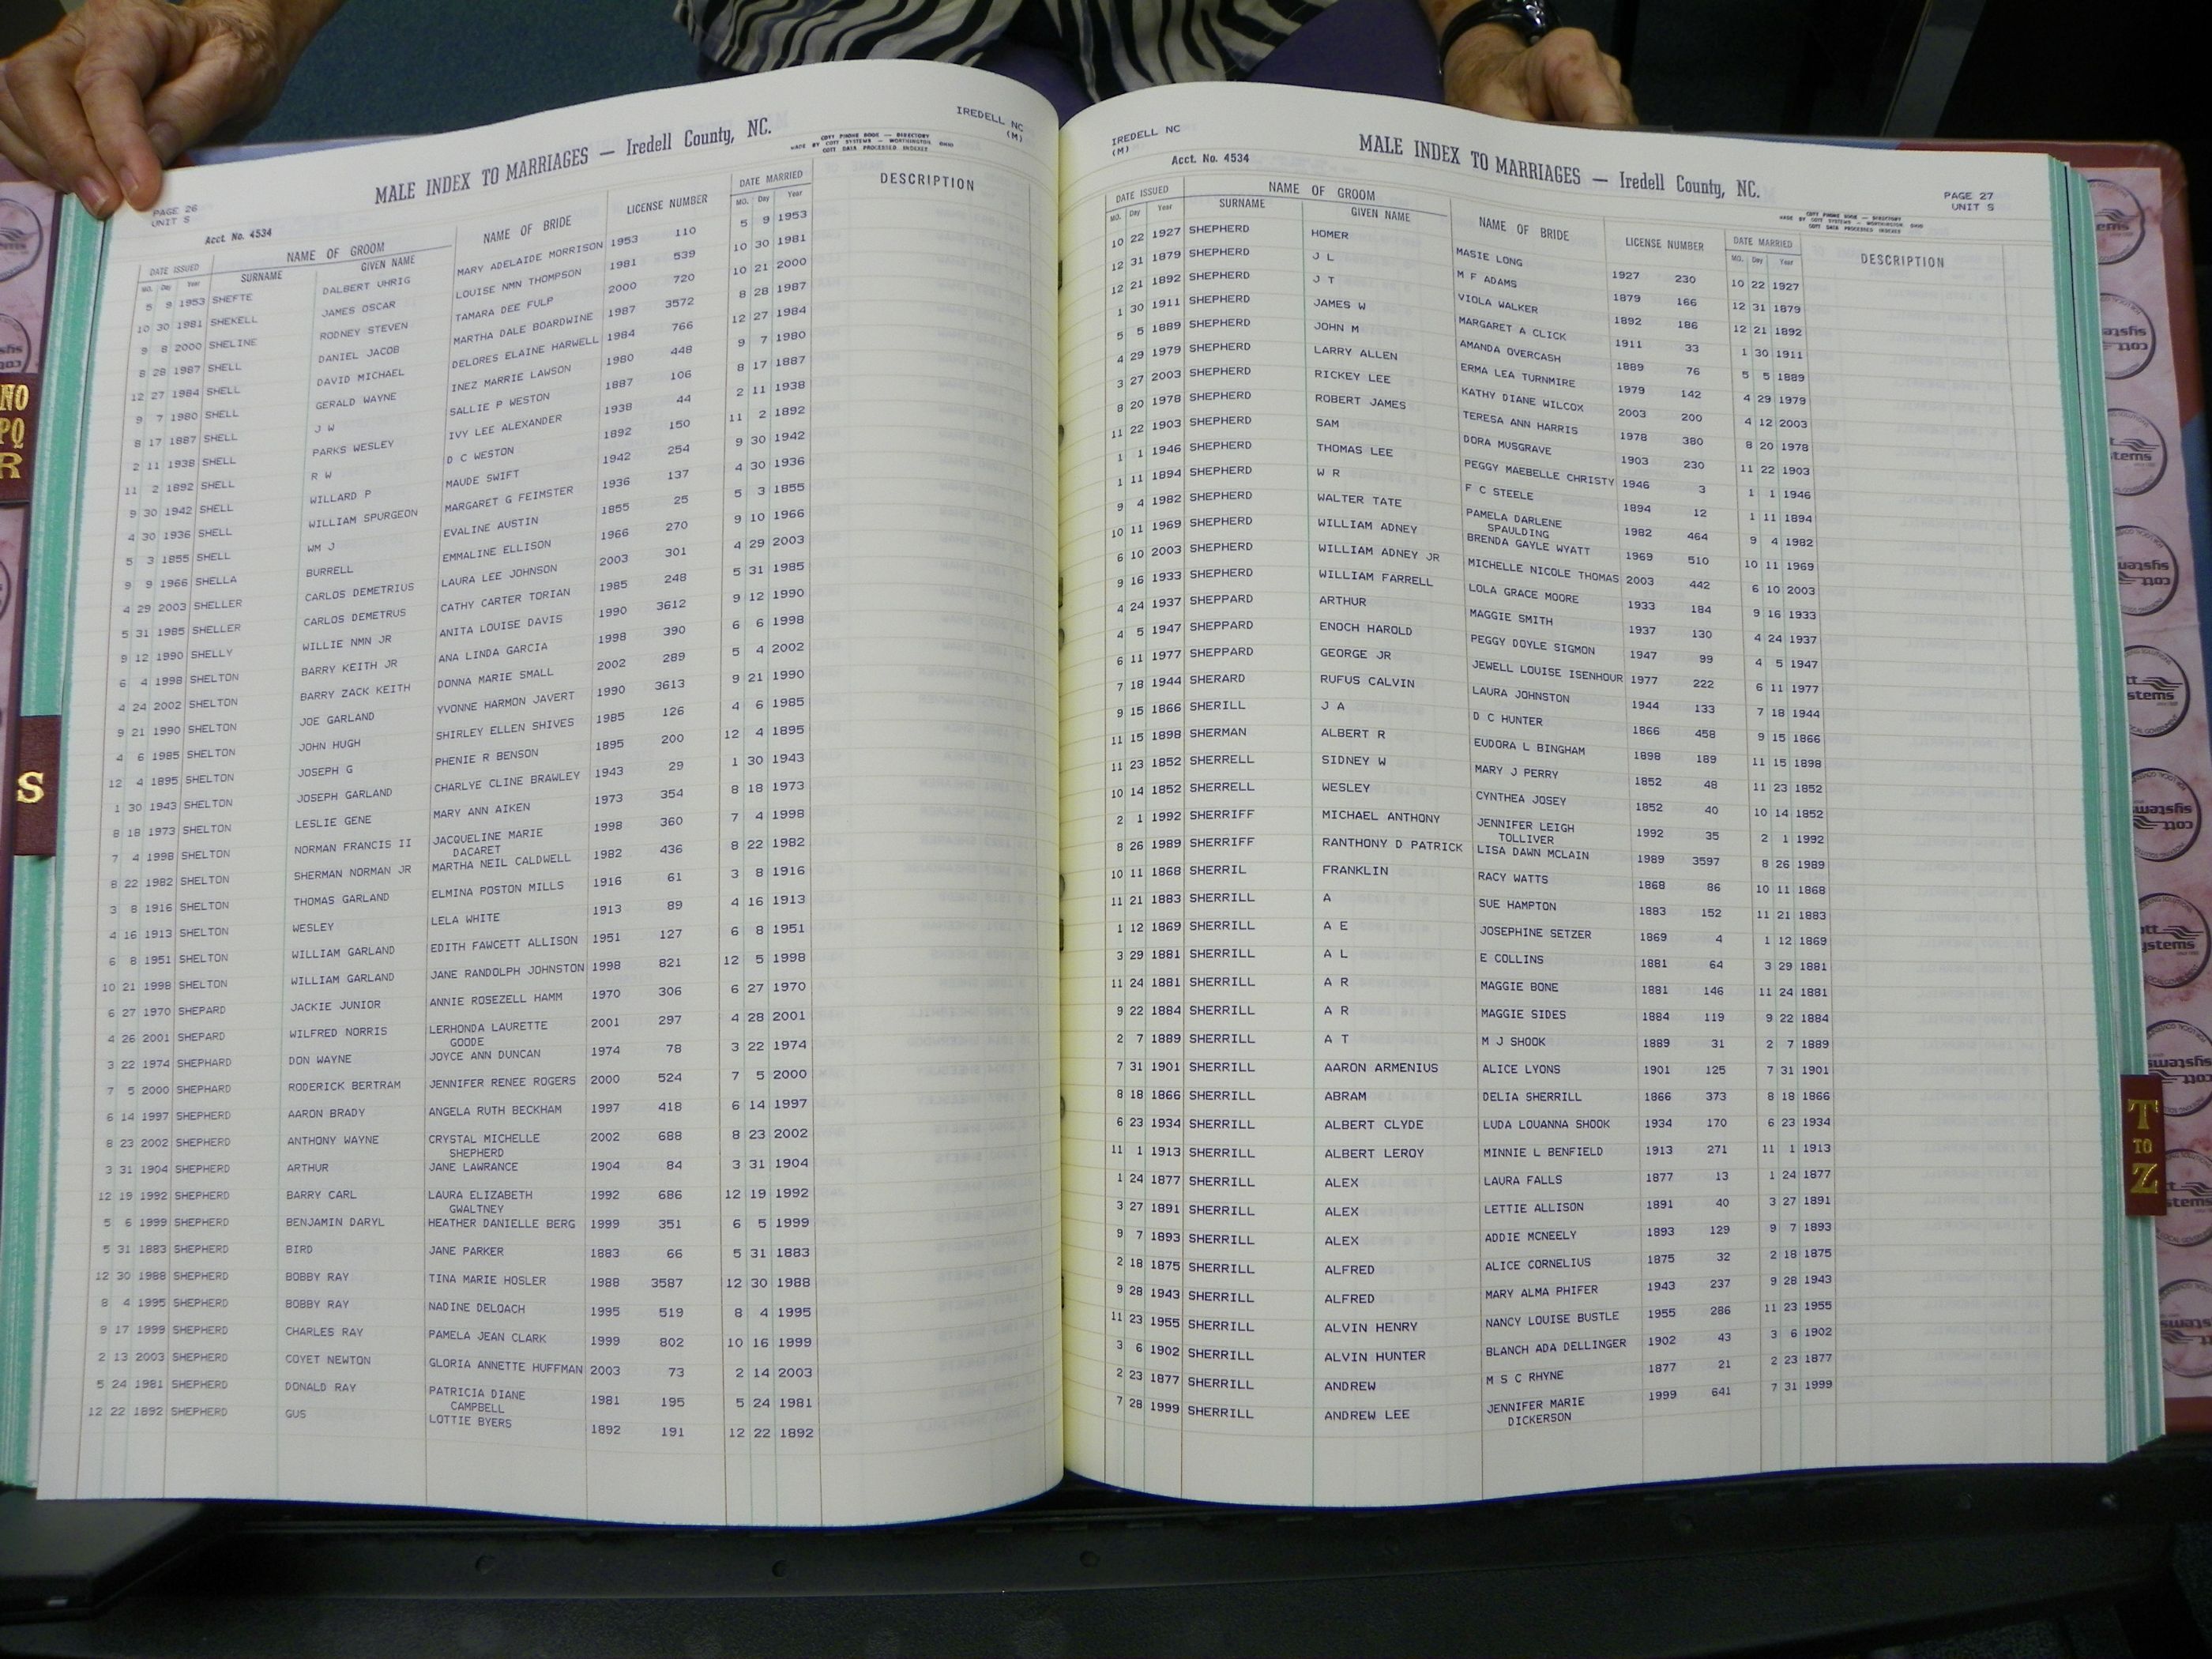 IREDELL NC
(M)
MALE INDEX TO MARRIAGES — Iredell County, NC.
COTT PHONE BOOK — DIRECTORY
MADE BY COTT SYSTEMS — WORTHINGTON, OHIO
COTT DATA PROCESSED INDEXER
PAGE 26
UNIT S
Acct. No. 4534
DATE ISSUED NAME OF GROOM NAME OF BRIDE LICENSE NUMBER DATE MARRIED DESCRIPTION
MO. Day Year SURNAME GIVEN NAME MO. Day Year
5 9 1953 SHEFTE DALBERT UHRIG MARY ADELAIDE MORRISON 1953 110 5 9 1953
10 30 1981 SHEKELL JAMES OSCAR LOUISE NMN THOMPSON 1981 539 10 30 1981
9 8 2000 SHELINE RODNEY STEVEN TAMARA DEE FULP 2000 720 10 21 2000
8 28 1987 SHELL DANIEL JACOB MARTHA DALE BOARDWINE 1987 3572 8 28 1987
12 27 1984 SHELL DAVID MICHAEL DELORES ELAINE HARWELL 1984 766 12 27 1984
9 7 1980 SHELL GERALD WAYNE INEZ MARRIE LAWSON 1980 448 9 7 1980
8 17 1887 SHELL J W SALLIE P WESTON 1887 106 8 17 1887
2 11 1938 SHELL PARKS WESLEY IVY LEE ALEXANDER 1938 44 2 11 1938
11 2 1892 SHELL R W D C WESTON 1892 150 11 2 1892
9 30 1942 SHELL WILLARD P MAUDE SWIFT 1942 254 9 30 1942
4 30 1936 SHELL WILLIAM SPURGEON MARGARET G FEIMSTER 1936 137 4 30 1936
5 3 1855 SHELL WM J EVALINE AUSTIN 1855 25 5 3 1855
9 9 1966 SHELLA BURRELL EMMALINE ELLISON 1966 270 9 10 1966
4 29 2003 SHELLER CARLOS DEMETRIUS LAURA LEE JOHNSON 2003 301 4 29 2003
5 31 1985 SHELLER CARLOS DEMETRUS CATHY CARTER TORIAN 1985 248 5 31 1985
9 12 1990 SHELLY WILLIE NMN JR ANITA LOUISE DAVIS 1990 3612 9 12 1990
6 4 1998 SHELTON BARRY KEITH JR ANA LINDA GARCIA 1998 390 6 6 1998
4 24 2002 SHELTON BARRY ZACK KEITH DONNA MARIE SMALL 2002 289 5 4 2002
9 21 1990 SHELTON JOE GARLAND YVONNE HARMON JAVERT 1990 3613 9 21 1990
4 6 1985 SHELTON JOHN HUGH SHIRLEY ELLEN SHIVES 1985 126 4 6 1985
12 4 1895 SHELTON JOSEPH G PHENIE R BENSON 1895 200 12 4 1895
1 30 1943 SHELTON JOSEPH GARLAND CHARLYE CLINE BRAWLEY 1943 29 1 30 1943
8 18 1973 SHELTON LESLIE GENE MARY ANN AIKEN 1973 354 8 18 1973
7 4 1998 SHELTON NORMAN FRANCIS II JACQUELINE MARIE 1998 360 7 4 1998
DACARET
8 22 1982 SHELTON SHERMAN NORMAN JR MARTHA NEIL CALDWELL 1982 436 8 22 1982
3 8 1916 SHELTON THOMAS GARLAND ELMINA POSTON MILLS 1916 61 3 8 1916
4 16 1913 SHELTON WESLEY LELA WHITE 1913 89 4 16 1913
6 8 1951 SHELTON WILLIAM GARLAND EDITH FAWCETT ALLISON 1951 127 6 8 1951
10 21 1998 SHELTON WILLIAM GARLAND JANE RANDOLPH JOHNSTON 1998 821 12 5 1998
6 27 1970 SHEPARD JACKIE JUNIOR ANNIE ROSEZELL HAMM 1970 306 6 27 1970
4 26 2001 SHEPARD WILFRED NORRIS LERHONDA LAURETTE 2001 297 4 28 2001
GOODE
3 22 1974 SHEPHARD DON WAYNE JOYCE ANN DUNCAN 1974 78 3 22 1974
7 5 2000 SHEPHARD RODERICK BERTRAM JENNIFER RENEE ROGERS 2000 524 7 5 2000
6 14 1997 SHEPHERD AARON BRADY ANGELA RUTH BECKHAM 1997 418 6 14 1997
8 23 2002 SHEPHERD ANTHONY WAYNE CRYSTAL MICHELLE 2002 688 8 23 2002
SHEPHERD
3 31 1904 SHEPHERD ARTHUR JANE LAWRANCE 1904 84 3 31 1904
12 19 1992 SHEPHERD BARRY CARL LAURA ELIZABETH 1992 686 12 19 1992
GWALTNEY
5 6 1999 SHEPHERD BENJAMIN DARYL HEATHER DANIELLE BERG 1999 351 6 5 1999
5 31 1883 SHEPHERD BIRD JANE PARKER 1883 66 5 31 1883
12 30 1988 SHEPHERD BOBBY RAY TINA MARIE HOSLER 1988 3587 12 30 1988
8 4 1995 SHEPHERD BOBBY RAY NADINE DELOACH 1995 519 8 4 1995
9 17 1999 SHEPHERD CHARLES RAY PAMELA JEAN CLARK 1999 802 10 16 1999
2 13 2003 SHEPHERD COYET NEWTON GLORIA ANNETTE HUFFMAN 2003 73 2 14 2003
5 24 1981 SHEPHERD DONALD RAY PATRICIA DIANE 1981 195 5 24 1981
CAMPBELL
12 22 1892 SHEPHERD GUS LOTTIE BYERS 1892 191 12 22 1892
IREDELL NC
(M)
MALE INDEX TO MARRIAGES — Iredell County, NC.
Acct. No. 4534
PAGE 27
UNIT S
COTT PHONE BOOK — DIRECTORY
MADE BY COTT SYSTEMS — WORTHINGTON, OHIO
COTT DATA PROCESSED INDEXER
DATE ISSUED NAME OF GROOM NAME OF BRIDE LICENSE NUMBER DATE MARRIED DESCRIPTION
MO. Day Year SURNAME GIVEN NAME MO. Day Year
10 22 1927 SHEPHERD HOMER MASIE LONG 1927 230 10 22 1927
12 31 1879 SHEPHERD J L M F ADAMS 1879 166 12 31 1879
12 21 1892 SHEPHERD J T VIOLA WALKER 1892 186 12 21 1892
1 30 1911 SHEPHERD JAMES W MARGARET A CLICK 1911 33 1 30 1911
5 5 1889 SHEPHERD JOHN M AMANDA OVERCASH 1889 76 5 5 1889
4 29 1979 SHEPHERD LARRY ALLEN ERMA LEA TURNMIRE 1979 142 4 29 1979
3 27 2003 SHEPHERD RICKEY LEE KATHY DIANE WILCOX 2003 200 4 12 2003
8 20 1978 SHEPHERD ROBERT JAMES TERESA ANN HARRIS 1978 380 8 20 1978
11 22 1903 SHEPHERD SAM DORA MUSGRAVE 1903 230 11 22 1903
1 1 1946 SHEPHERD THOMAS LEE PEGGY MAEBELLE CHRISTY 1946 3 1 1 1946
1 11 1894 SHEPHERD W R F C STEELE 1894 12 1 11 1894
9 4 1982 SHEPHERD WALTER TATE PAMELA DARLENE 1982 464 9 4 1982
SPAULDING
10 11 1969 SHEPHERD WILLIAM ADNEY BRENDA GAYLE WYATT 1969 510 10 11 1969
6 10 2003 SHEPHERD WILLIAM ADNEY JR MICHELLE NICOLE THOMAS 2003 442 6 10 2003
9 16 1933 SHEPHERD WILLIAM FARRELL LOLA GRACE MOORE 1933 184 9 16 1933
4 24 1937 SHEPPARD ARTHUR MAGGIE SMITH 1937 130 4 24 1937
4 5 1947 SHEPPARD ENOCH HAROLD PEGGY DOYLE SIGMON 1947 99 4 5 1947
6 11 1977 SHEPPARD GEORGE JR JEWELL LOUISE ISENHOUR 1977 222 6 11 1977
7 18 1944 SHERARD RUFUS CALVIN LAURA JOHNSTON 1944 133 7 18 1944
9 15 1866 SHERILL J A D C HUNTER 1866 458 9 15 1866
11 15 1898 SHERMAN ALBERT R EUDORA L BINGHAM 1898 189 11 15 1898
11 23 1852 SHERRELL SIDNEY W MARY J PERRY 1852 48 11 23 1852
10 14 1852 SHERRELL WESLEY CYNTHEA JOSEY 1852 40 10 14 1852
2 1 1992 SHERRIFF MICHAEL ANTHONY JENNIFER LEIGH 1992 35 2 1 1992
TOLLIVER
8 26 1989 SHERRIFF RANTHONY D PATRICK LISA DAWN MCLAIN 1989 3597 8 26 1989
10 11 1868 SHERRIL FRANKLIN RACY WATTS 1868 86 10 11 1868
11 21 1883 SHERRILL A SUE HAMPTON 1883 152 11 21 1883
1 12 1869 SHERRILL A E JOSEPHINE SETZER 1869 4 1 12 1869
3 29 1881 SHERRILL A L E COLLINS 1881 64 3 29 1881
11 24 1881 SHERRILL A R MAGGIE BONE 1881 146 11 24 1881
9 22 1884 SHERRILL A R MAGGIE SIDES 1884 119 9 22 1884
2 7 1889 SHERRILL A T M J SHOOK 1889 31 2 7 1889
7 31 1901 SHERRILL AARON ARMENIUS ALICE LYONS 1901 125 7 31 1901
8 18 1866 SHERRILL ABRAM DELIA SHERRILL 1866 373 8 18 1866
6 23 1934 SHERRILL ALBERT CLYDE LUDA LOUANNA SHOOK 1934 170 6 23 1934
11 1 1913 SHERRILL ALBERT LEROY MINNIE L BENFIELD 1913 271 11 1 1913
1 24 1877 SHERRILL ALEX LAURA FALLS 1877 13 1 24 1877
3 27 1891 SHERRILL ALEX LETTIE ALLISON 1891 40 3 27 1891
9 7 1893 SHERRILL ALEX ADDIE MCNEELY 1893 129 9 7 1893
2 18 1875 SHERRILL ALFRED ALICE CORNELIUS 1875 32 2 18 1875
9 28 1943 SHERRILL ALFRED MARY ALMA PHIFER 1943 237 9 28 1943
11 23 1955 SHERRILL ALVIN HENRY NANCY LOUISE BUSTLE 1955 286 11 23 1955
3 6 1902 SHERRILL ALVIN HUNTER BLANCH ADA DELLINGER 1902 43 3 6 1902
2 23 1877 SHERRILL ANDREW M S C RHYNE 1877 21 2 23 1877
7 28 1999 SHERRILL ANDREW LEE JENNIFER MARIE 1999 641 7 31 1999
DICKERSON
NO
PQ
R
S
T
TO
Z